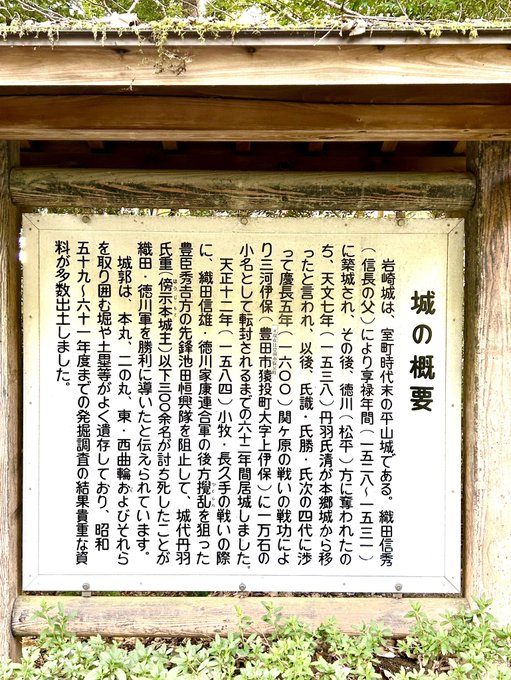 城の概要
岩崎城は、室町時代末の平山城である。織田信秀
（信長の父）により享禄年間（一五二八～一五三一）
に築城され、その後、徳川（松平）方に奪われたの
ち、天文七年（一五三八）丹羽氏清が本郷城から移
ったと言われ、以後、氏識・氏勝・氏次の四代に渉
って慶長五年（一六〇〇）関ヶ原の戦いの戦功によ
り三河伊保（豊田市猿投町大字上伊保）に一万石の
小名として転封されるまでの六十二年間居城しました。
天正十二年（一五八四）小牧・長久手の戦いの際
に、織田信雄・徳川家康連合軍の後方攪乱を狙った
豊臣秀吉方の先鋒池田恒興隊を阻止して、城代丹羽
氏重（傍示本城主）以下三〇〇余名が討ち死したことが
織田・徳川軍を勝利に導いたと伝えられています。
城郭は、本丸、二の丸、東・西曲輪およびそれら
を取り囲む堀や土塁等がよく遺存しており、昭和
五十九～六十一年度までの発掘調査の結果貴重な資
料が多数出土しました。